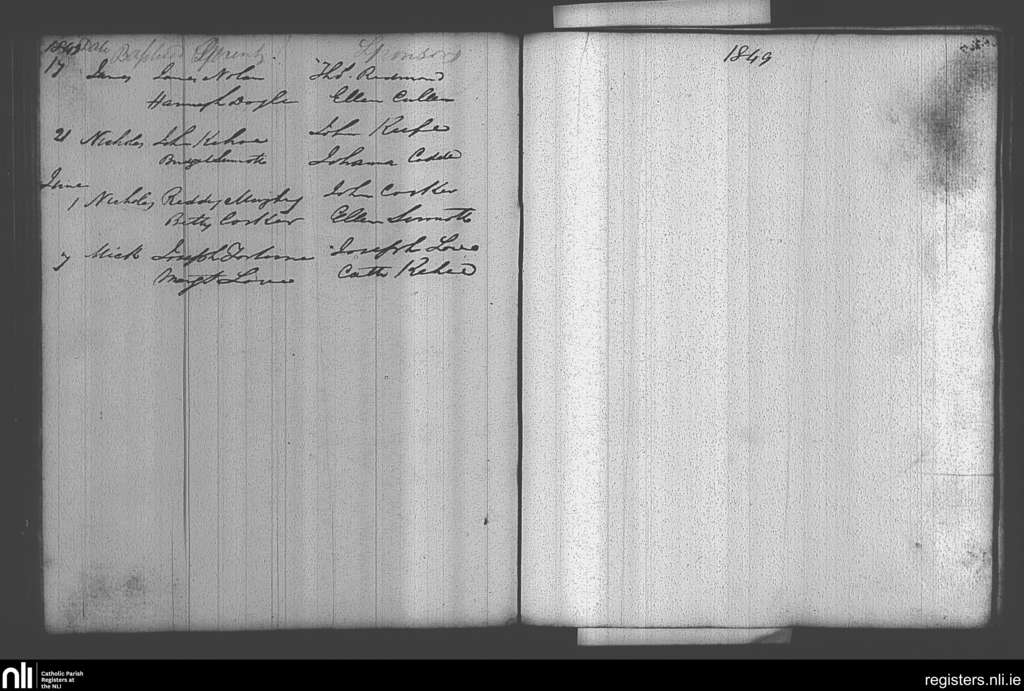 1849 Date Baptized Parents Sponsors
17 James James Nolan Thos. Redmond
Hannah Doyle Ellen Cullen
21 Nicholas John Kehoe John Keefe
Bridget Sinnott Johanna
June
1 Nicholas Paddy Murphy John Corker
Betty Corker Ellen Sinnott
7 Mick Joseph Joseph
Margt Cath Kehoe
1849
nli
Catholic Parish
Registers at
the NLI
registers.nli.ie